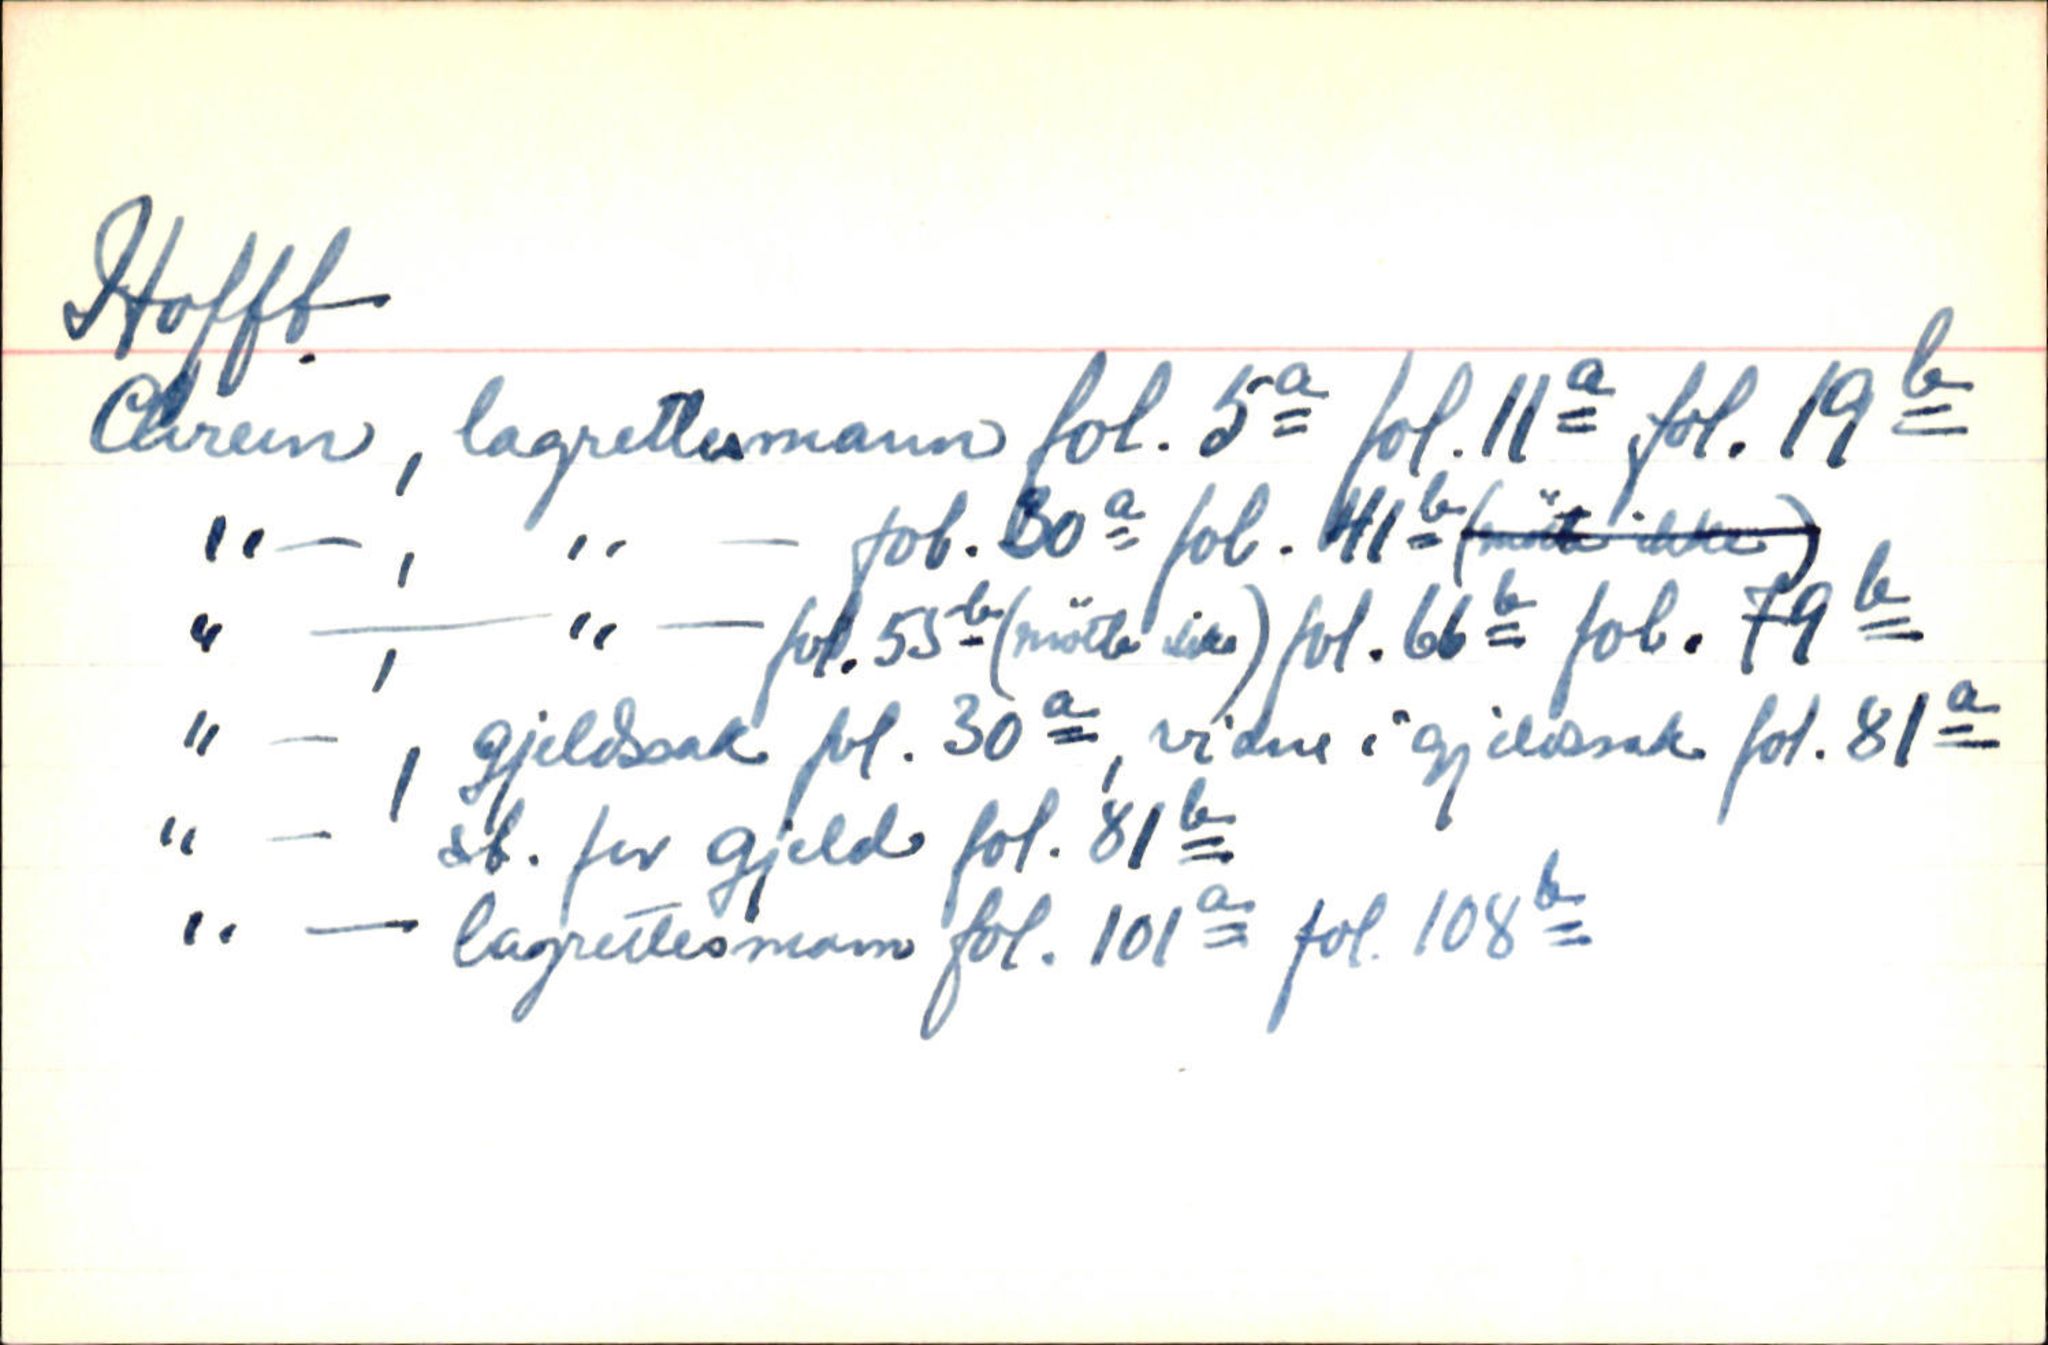 Hoff.
Chrein, lagrettesmann fol. 5a fol. 11a fol. 19b
"—, " — fol. 30a fol. 41b (mötte ikke)
" —, " — fol. 53b (mötte ikke) fol. 66b fol. 79b
" —, gjeldssak fol. 30a, vidne i gjeldssak fol. 81a
" — sb. for gjeld fol. 81b
" — lagrettesmann fol. 101a fol. 108b